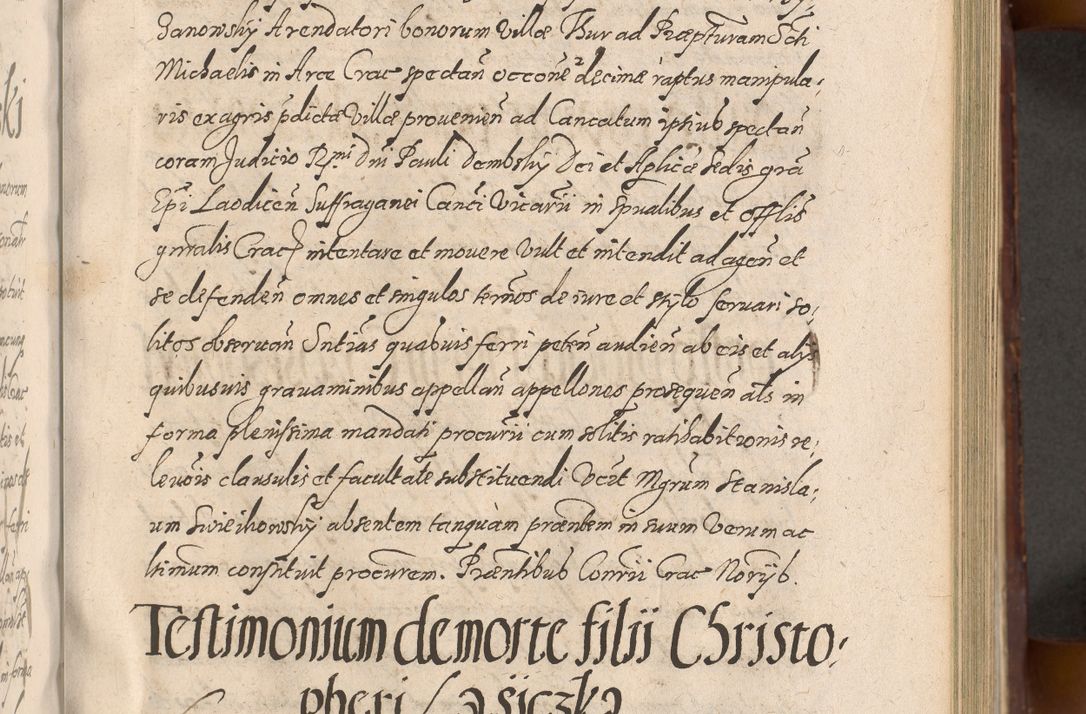 Janowskÿ Arendatori bonorum Villæ Thur ad Præpturam Scti
Michaelis in Arce Crac spectan̄ occone decimæ raptus manipula:
ris ex agris p̄dictæ Villæ provenien̄ ad Cancatum ipsius spectan̄
coram Judicio Rmi Dni Pauli Dembskÿ Dei et Aplicæ Sedis grā
Ep̄i Laodicen̄ Suffraganei Can̄ci Vicarii in Spualibus et offlis
gn̄ralis Crac intentare et movere Vult et intendit ad agen̄ et
se defenden̄ omnes et singulos termōs de iure et stylo servari so:
litos observan̄ Sntias quabuis ferri peten̄ audien̄ ab eis et alijs
quibusuis gravaminibus appellan̄ appellones prosequen̄ als in
forma plenissima mandati procurii cum solitis ratihabitionis re:
levōis clausulis et facultate substituendi Vēr̄t Mgrum Stanisla:
um Swieihowskÿ absentem tanquam præntem in suum Verum ac
ltimum constituit procurem. Præntibus Conrii Crac Norijb.
Testimonium de morte filii Christo:
pheri Lasiczka